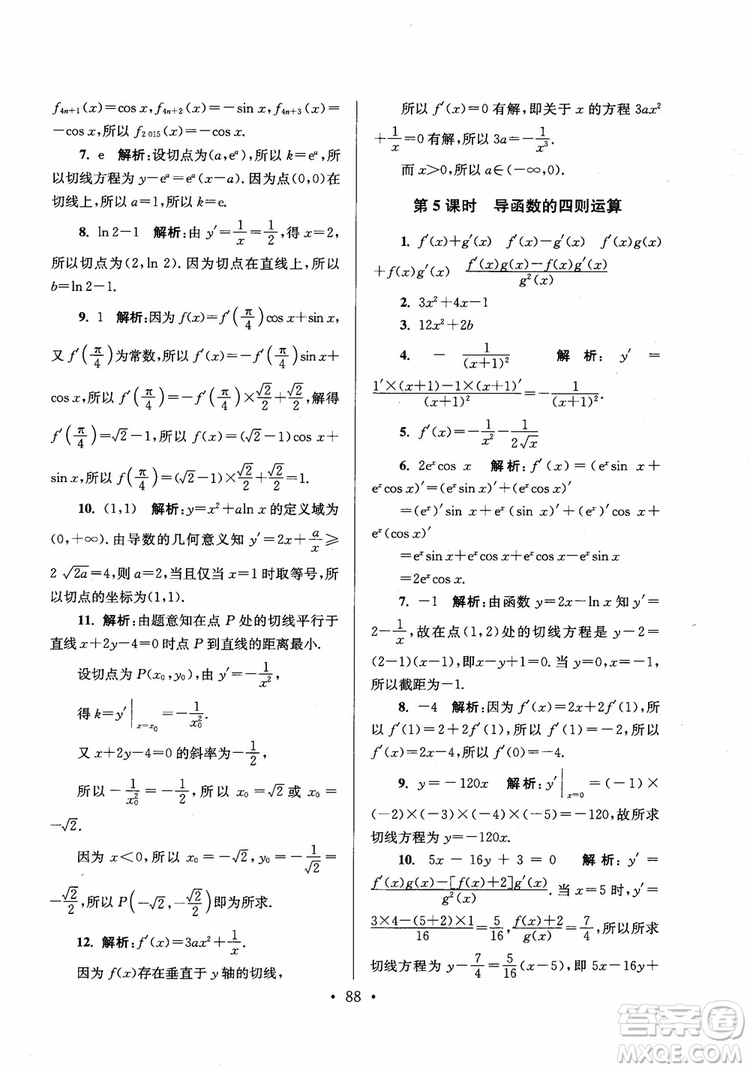 f₄ₙ₊₁(x)=cos x,f₄ₙ₊₂(x)=-sin x,f₄ₙ₊₃(x)=
-cos x,所以 f₂ ₀₁₅(x)=-cos x.
7. e 解析:设切点为(a,eᵃ),所以 k=eᵃ,所
以切线方程为 y-eᵃ=eᵃ(x-a). 因为点(0,0)在
切线上,所以 a=1,所以 k=e.
8. ln 2-1 解析:由 y′=1/x=1/2,得 x=2,
所以切点为(2,ln 2). 因为切点在直线上,所以
b=ln 2-1.
9. 1 解析:因为 f(x)=f′(π/4)cos x+sin x,
又 f′(π/4)为常数,所以 f′(x)=-f′(π/4)sin x+
cos x,所以 f′(π/4)=-f′(π/4)×√2/2+√2/2,解得
f′(π/4)=√2-1,所以 f(x)=(√2-1)cos x+
sin x,所以 f(π/4)=(√2-1)×√2/2+√2/2=1.
10. (1,1) 解析:y=x²+aln x 的定义域为
(0,+∞). 由导数的几何意义知 y′=2x+a/x≥
2 √2a=4,则 a=2,当且仅当 x=1 时取等号,所
以切点的坐标为(1,1).
11. 解析:由题意知在点 P 处的切线平行于
直线 x+2y-4=0 时点 P 到直线的距离最小.
设切点为 P(x₀,y₀),由 y′=-1/x²,
得 k=y′|ₓ₌ₓ₀=-1/x₀².
又 x+2y-4=0 的斜率为-1/2,
所以 -1/x₀²=-1/2,所以 x₀=√2 或 x₀=
-√2.
因为 x<0,所以 x₀=-√2,y₀=1/-√2=
-√2/2,所以 P(-√2,-√2/2)即为所求.
12. 解析:f′(x)=3ax²+1/x.
因为 f(x)存在垂直于 y 轴的切线,
所以 f′(x)=0 有解,即关于 x 的方程 3ax²
+1/x=0 有解,所以 3a=-1/x³.
而 x>0,所以 a∈(-∞,0).
第 5 课时 导函数的四则运算
1. f′(x)+g′(x) f′(x)-g′(x) f′(x)g(x)
+f(x)g′(x) f′(x)g(x)-f(x)g′(x)/g²(x)
2. 3x²+4x-1
3. 12x²+2b
4. -1/(x+1)² 解析:y′=
1′×(x+1)-1×(x+1)′/(x+1)²=-1/(x+1)².
5. f′(x)=-1/x²-1/2√x
6. 2eˣcos x 解析:f′(x)=(eˣsin x+
eˣcos x)′
=(eˣ)′sin x+eˣ(sin x)′+(eˣ)′cos x+
eˣ(cos x)′
=eˣsin x+eˣcos x+eˣcos x-eˣsin x
=2eˣcos x.
7. -1 解析:由函数 y=2x-ln x 知 y′=
2-1/x,故在点(1,2)处的切线方程为 y-2=
(2-1)(x-1),即 x-y+1=0. 令 y=0,得 x=-1,
所以截距为-1.
8. -4 解析:因为 f′(x)=2x+2f′(1),所
以 f′(1)=2+2f′(1),所以 f′(1)=-2,所以
f′(x)=2x-4,所以 f′(0)=-4.
9. y=-120x 解析:y′|ₓ₌₀=(-1)×
(-2)×(-3)×(-4)×(-5)=-120,故所求
切线方程为 y=-120x.
10. 5x-16y+3=0 解析:y′=
f′(x)g(x)-[f(x)+2]g′(x)/g²(x). 当 x=5 时,y′=
3×4-(5+2)×1/16=5/16,f(x)+2/g(x)=7/4,所以所求
切线方程为 y-7/4=5/16(x-5),即 5x-16y+
• 88 •
答案圈
MXQE.COM